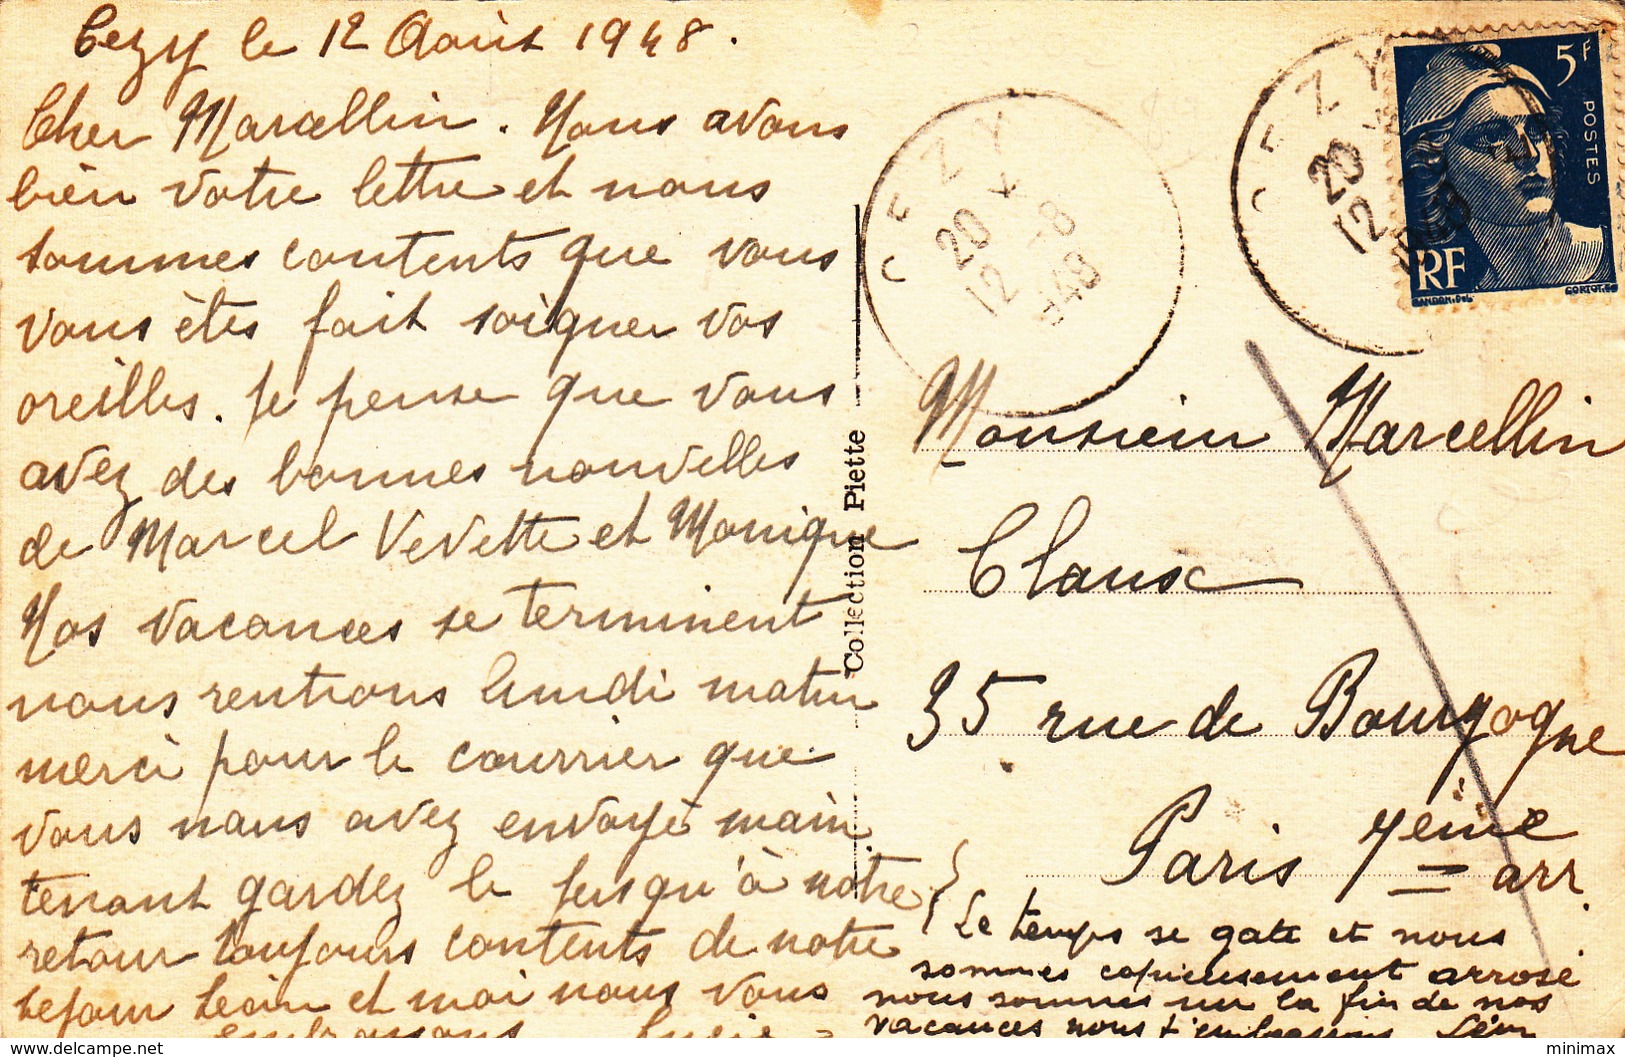 Cezy le 12 Août 1948.
Cher Marcellin. Nous avons
bien votre lettre et nous
sommes contents que vous
vous êtes fait soigner vos
oreilles. Je pense que vous
avez des bonnes nouvelles
de Marcel Vevette et Monique
Nos vacances se terminent
nous rentrons lundi matin
merci pour le courrier que
vous nous avez envoyé main
tenant gardez le jusqu'à notre
retour toujours contents de notre
sejour Léon et moi nous vous
embrassons Lucie
Collection Piette
CEZY
20 *
12 -8
1948
CEZY
20
12
1948
5F
POSTES
RF
GANDON.DEL
CORTOT.SC
Monsieur Marcellin
Claux
35 rue de Bourgogne
Paris 7ème
arr.
Le temps se gate et nous
sommes copieusement arrosé
nous sommes sur la fin de nos
vacances nous t'embrassons Léon
minimax